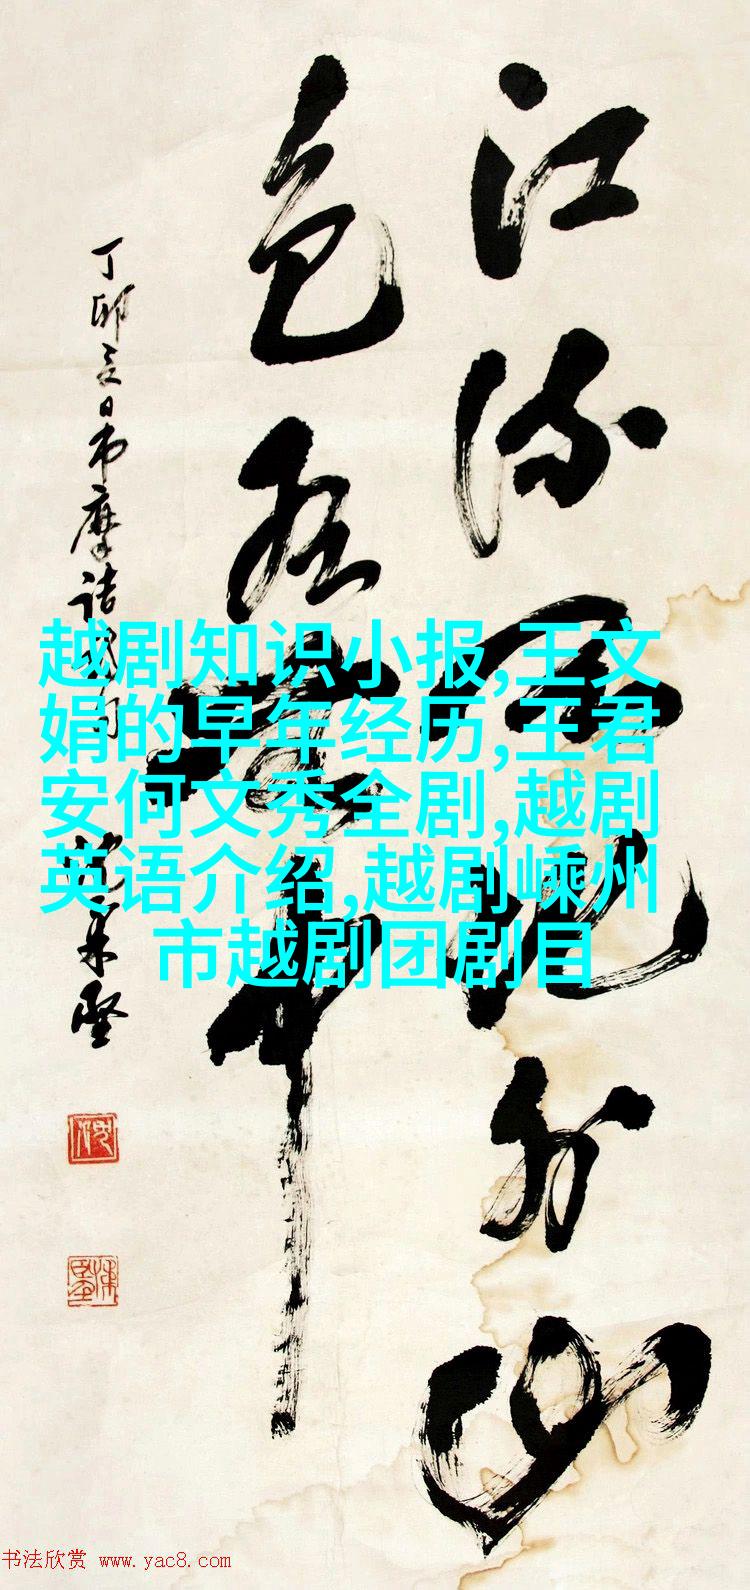 江流天地外山
色有无中
丁卯夏日书摩诘诗句
越剧知识小报,王文
娟的早年经历,王君
安何文秀全剧,越剧
英语介绍,越剧嵊州
市越剧团剧目
书法欣赏 www.yac8.com